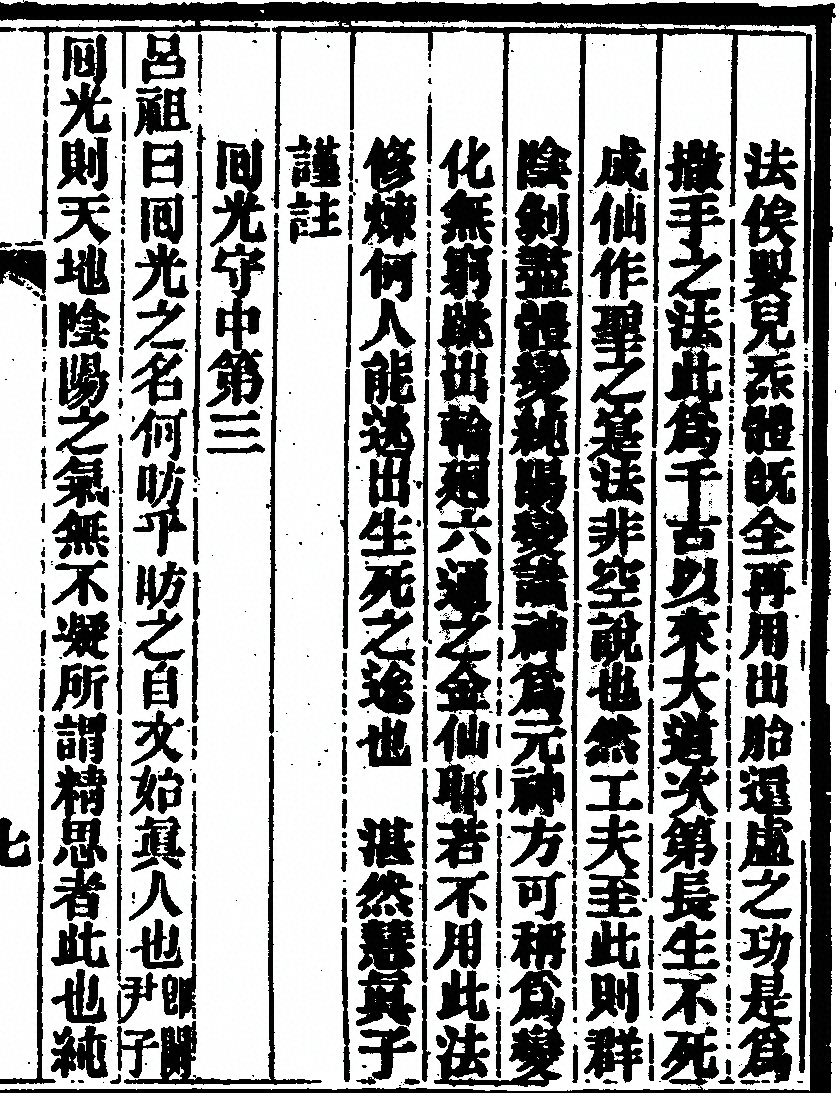 法俟嬰兒炁體既全再用出胎還虛之功是爲
撒手之法此爲千古以來大道次第長生不死
成仙作聖之寔法非空說也然工夫至此則群
陰剝盡體變純陽變識神爲元神方可稱爲變
化無窮跳出輪廻六通之金仙耶若不用此法
修煉何人能逃出生死之途也　湛然慧眞子
謹註
囘光守中第三
呂祖曰囘光之名何昉乎昉之自文始眞人也卽關尹子
囘光則天地陰陽之氣無不凝所謂精思者此也純
七